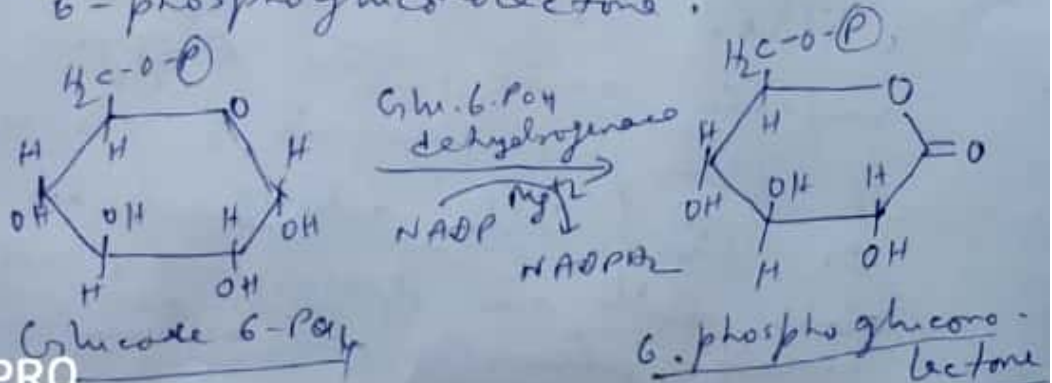 6-phosphogluconolactone.
H₂C-O-Ⓟ
O
H
H
H
OH
OH
H
OH
H
OH
Glucose 6-PO4
Glu.6.PO4
dehydrogenase
NADP
Mg+2
NADPH2
H₂C-O-Ⓟ.
O
H
H
=O
OH
OH
H
H
OH
6.phosphoglucono-
lactone
PRO